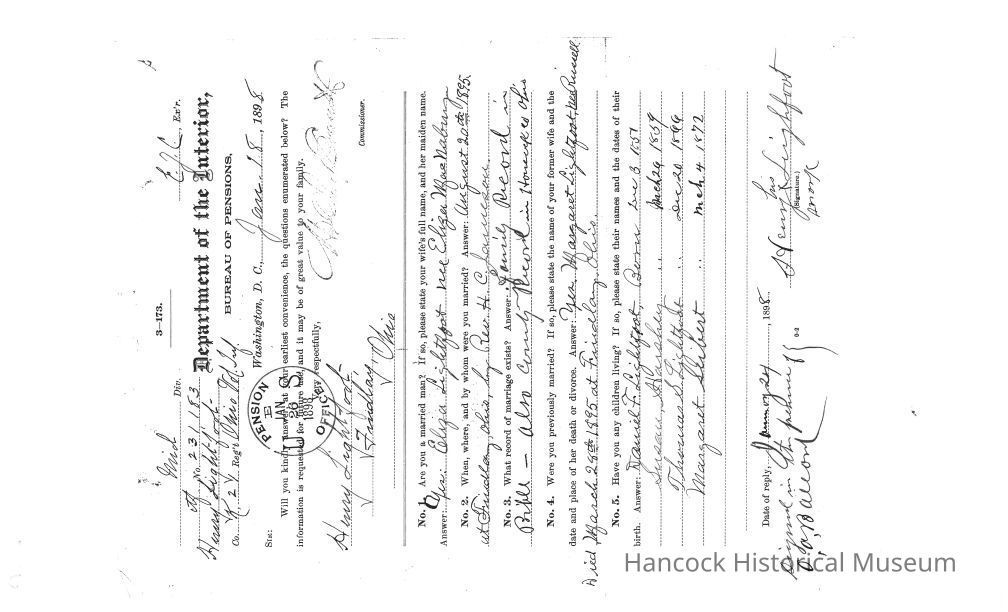 3—173.
E.J.C., Ex'r.
Mid Div.
No. 231153
Henry Lightfoot
Co. K 21 Reg't Ohio Vol Inf
Department of the Interior,
BUREAU OF PENSIONS,
Washington, D. C., Jan. 15, 1898
SIR:
Will you kindly answer, at your earliest convenience, the questions enumerated below? The
information is requested for future use, and it may be of great value to your family.
Very respectfully,
Henry Lightfoot
Findlay
Ohio
Commissioner.
PENSION OFFICE
U S
JAN 26 1898
No. 1. Are you a married man? If so, please state your wife's full name, and her maiden name.
Answer: Yes. Eliza Lightfoot nee Eliza
No. 2. When, where, and by whom were you married? Answer: August 20th 1895.
at Findlay, Ohio, by Rev. H. C. Jameson.
No. 3. What record of marriage exists? Answer: Family Record in
Bible – also County Record in Hancock co Ohio
No. 4. Were you previously married? If so, please state the name of your former wife and the
date and place of her death or divorce. Answer: Yes, Margaret Lightfoot, nee Russell
Died March 28th 1895 at Findlay Ohio.
No. 5. Have you any children living? If so, please state their names and the dates of their
birth. Answer: Daniel F. Lightfoot Born Dec 3 1857
Susan Mch 29 1859
Thomas S. Lightfoot " Dec 20 1866
Margaret " Mch 4 1872
Date of reply, January, 1898
Henry his Lightfoot
(Signature)
mark
Signed in
Hancock Historical Museum